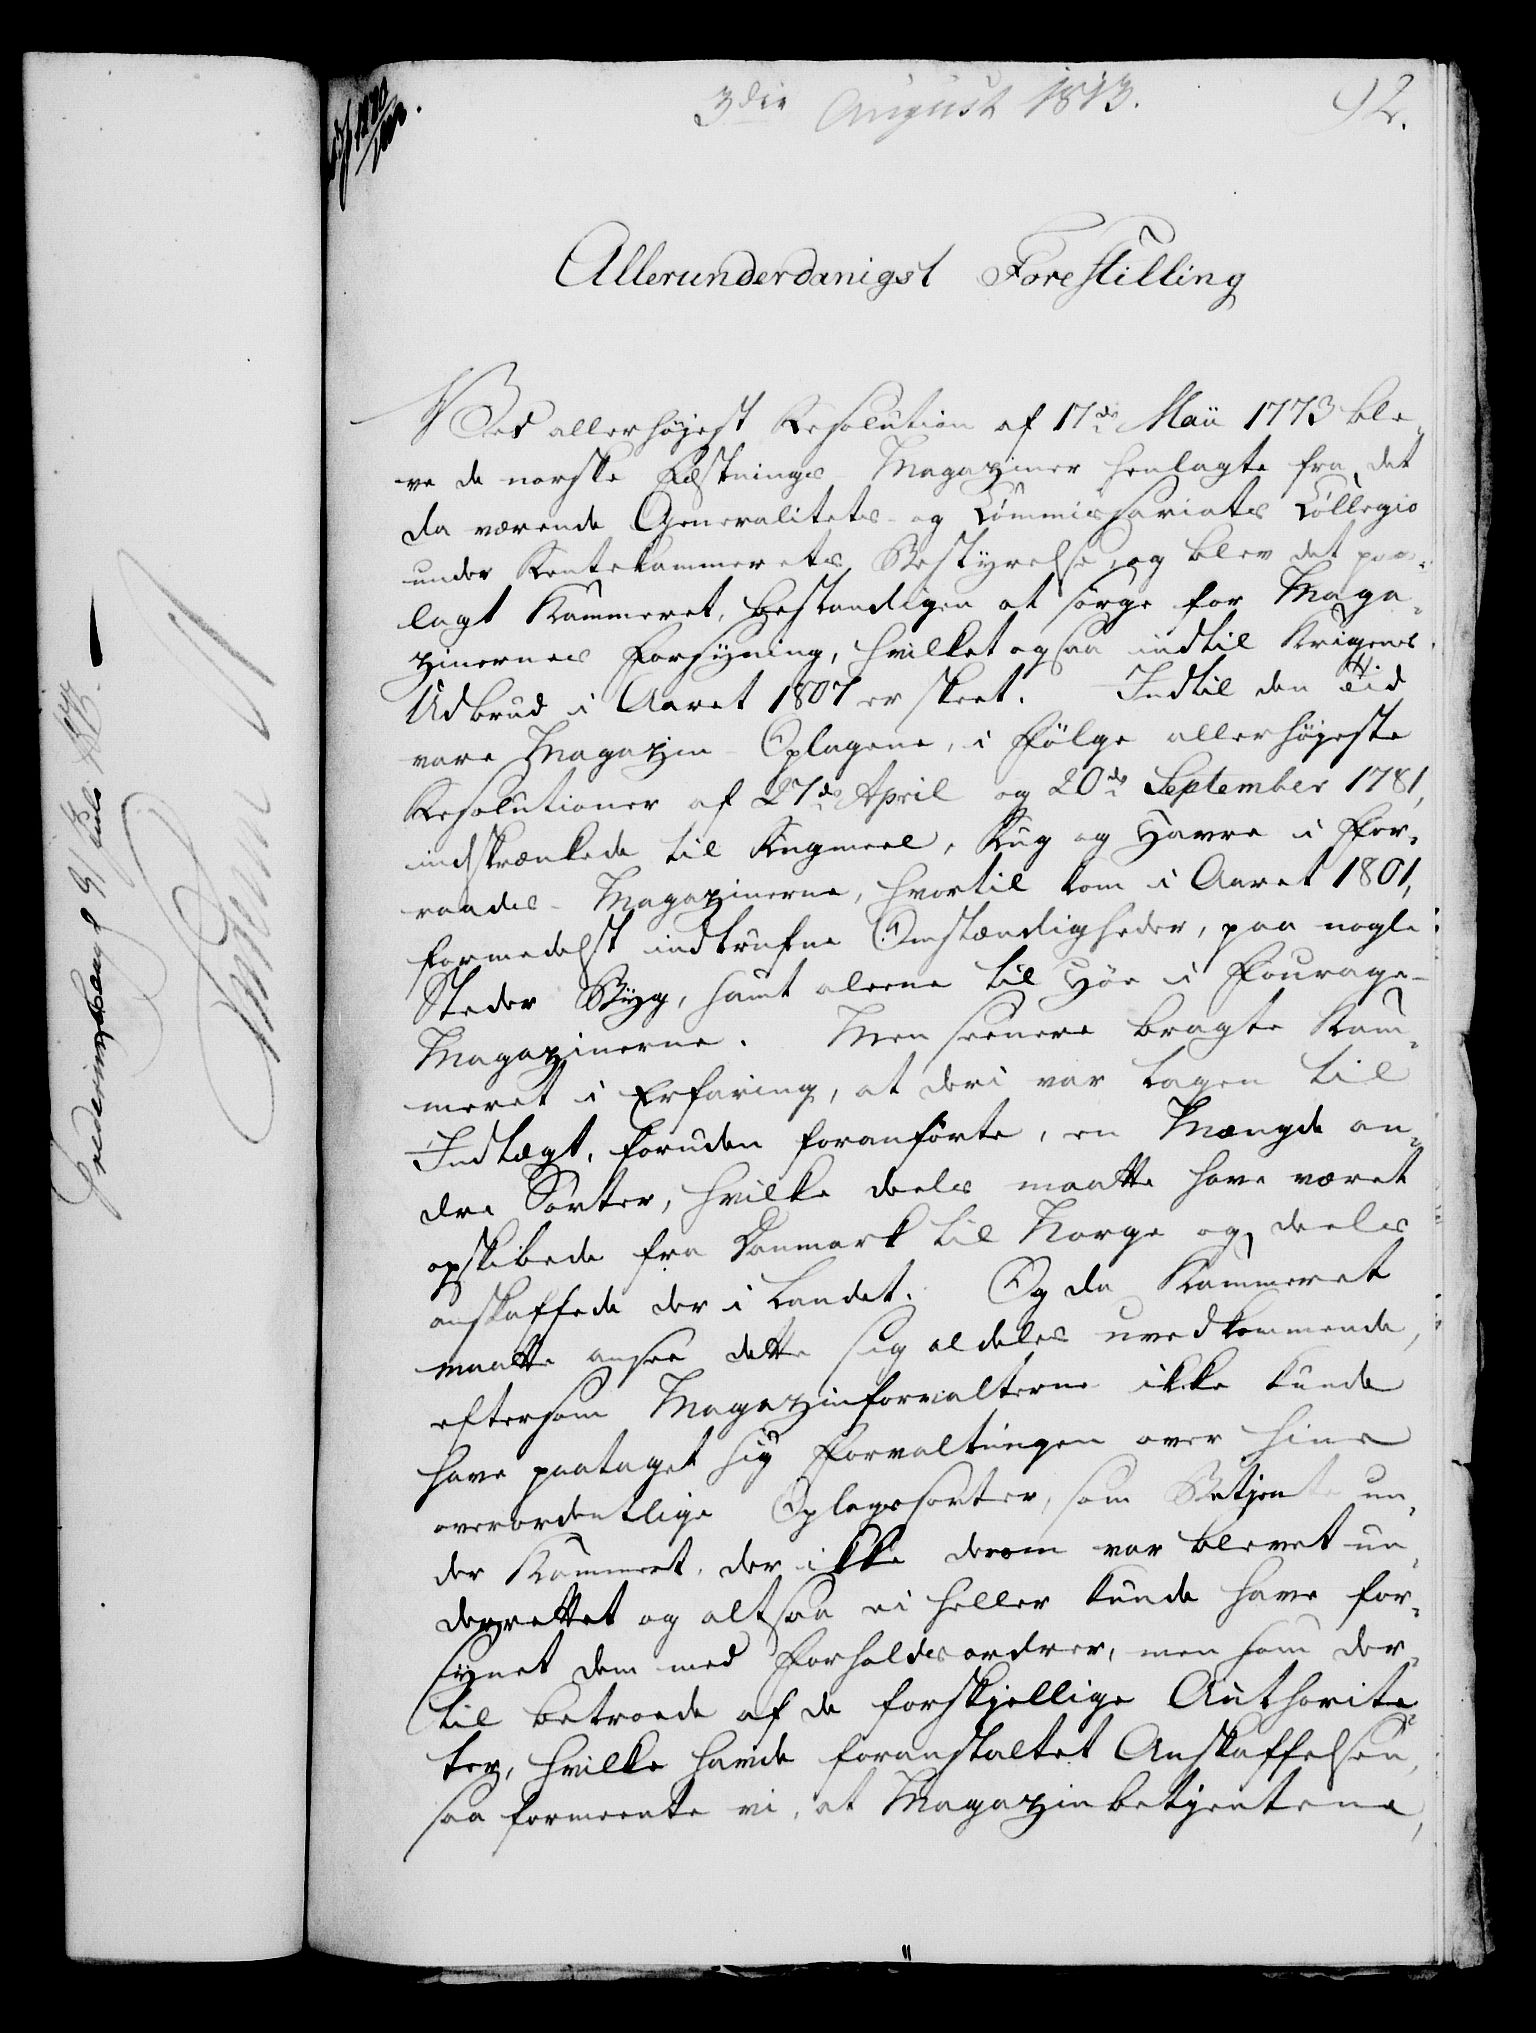 3die August 1813.
92.
Allerunderdanigst Forestilling
Ved allerhøjest Resolution af 17de Maii 1773 ble-
ve de norske Fæstnings Magaziner henlagte fra det
da værende Generalitets- og Commissariats Collegio
under Rentekammerets Bestyrelse, og blev det paa-
lagt Kammeret, bestandigen at sørge for Maga-
zinernes Forsyning, hvilket ogsaa indtil Krigens
Udbrud i Aaret 1807 er skeet. Indtil den Tid
vare Magazin-Oplagene, i Følge allerhøjeste
Resolutioner af 27de April og 20de September 1781,
indskrænkede til Rugmeel, Rug og Havre i For-
raads-Magazinerne, hvortil kom i Aaret 1801,
formedelst indtrufne Omstændigheder, paa nogle
Steder Byg, samt alene til Høe i Fourage-
Magazinerne. Men seenere bragte Kam-
meret i Erfaring, at deri var tagen til
Indtægt, foruden foranførte, en Mængde an-
dre Sorter, hvilke deels maatte have været
opskibede fra Danmark til Norge og deels
anskaffede der i Landet. Og da Kammeret
maatte ansee dette sig aldeles uvedkommende,
eftersom Magazinforvalterne ikke kunde
have paataget sig Forvaltningen over hine
overordentlige Oplagssorter, som Betjente un-
der Kammeret, der ikke derom var blevet un-
derrettet og altsaa ei heller kunde have for-
synet dem med Forholdsordrer, men som der-
til betroede af de forskjellige Authorite-
ter, hvilke havde foranstaltet Anskaffelsen,
saa formeente vi, at Magazinbetjentene,